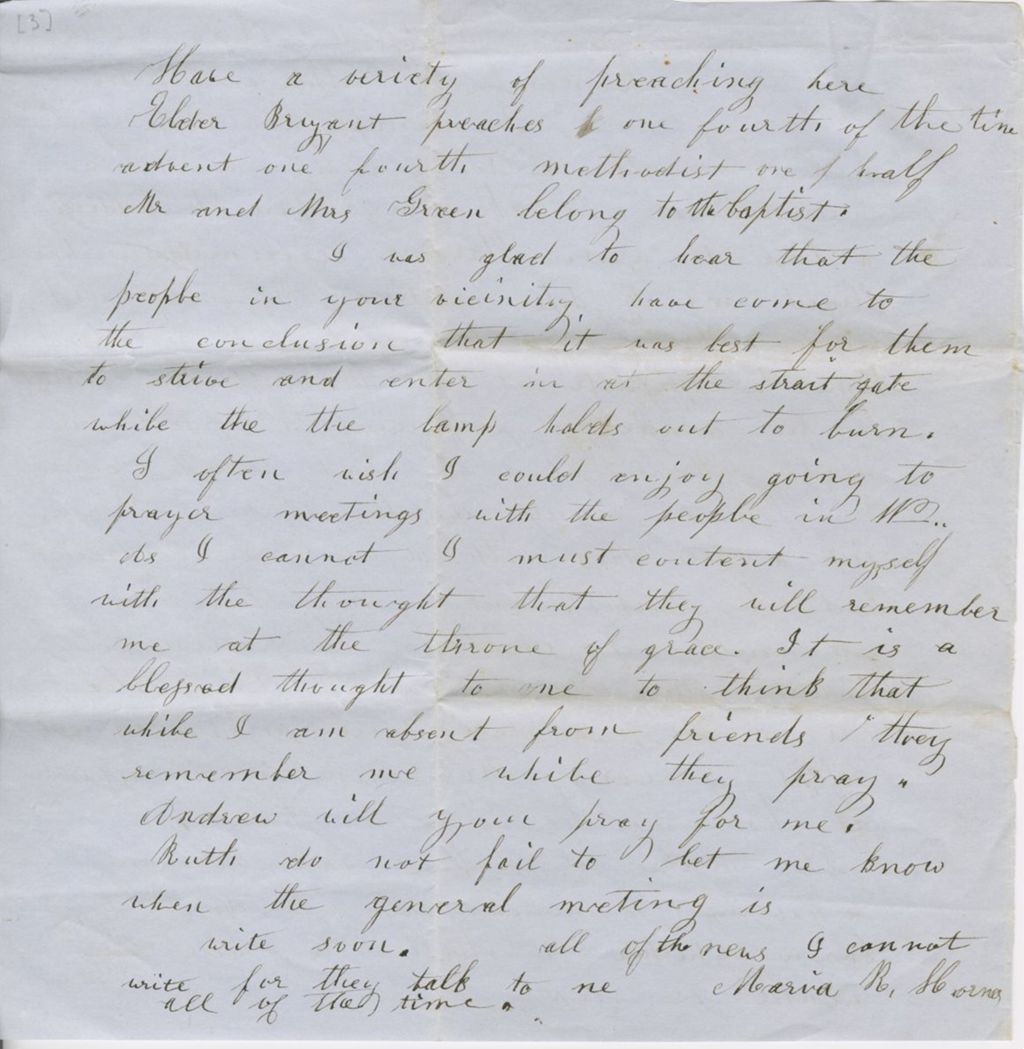 [3]
Have a veriety of preaching here
Elder Bryant preaches one fourth of the time
advent one fourth methodist one half
Mr and Mrs Green belong to the baptist.
I was glad to hear that the
people in your vicinity have come to
the conclusion that it was best for them
to strive and enter in at the strait gate
while the the lamp holds out to burn.
I often wish I could enjoy going to
prayer meetings with the people in W..
As I cannot I must content myself
with the thought that they will remember
me at the throne of grace. It is a
blessed thought to me to think that
while I am absent from friends they
remember me while they pray.
Andrew will you pray for me.
Ruth do not fail to let me know
when the general meeting is
write soon. all of the news I cannot
write for they talk to me Maria R,
all of the time.